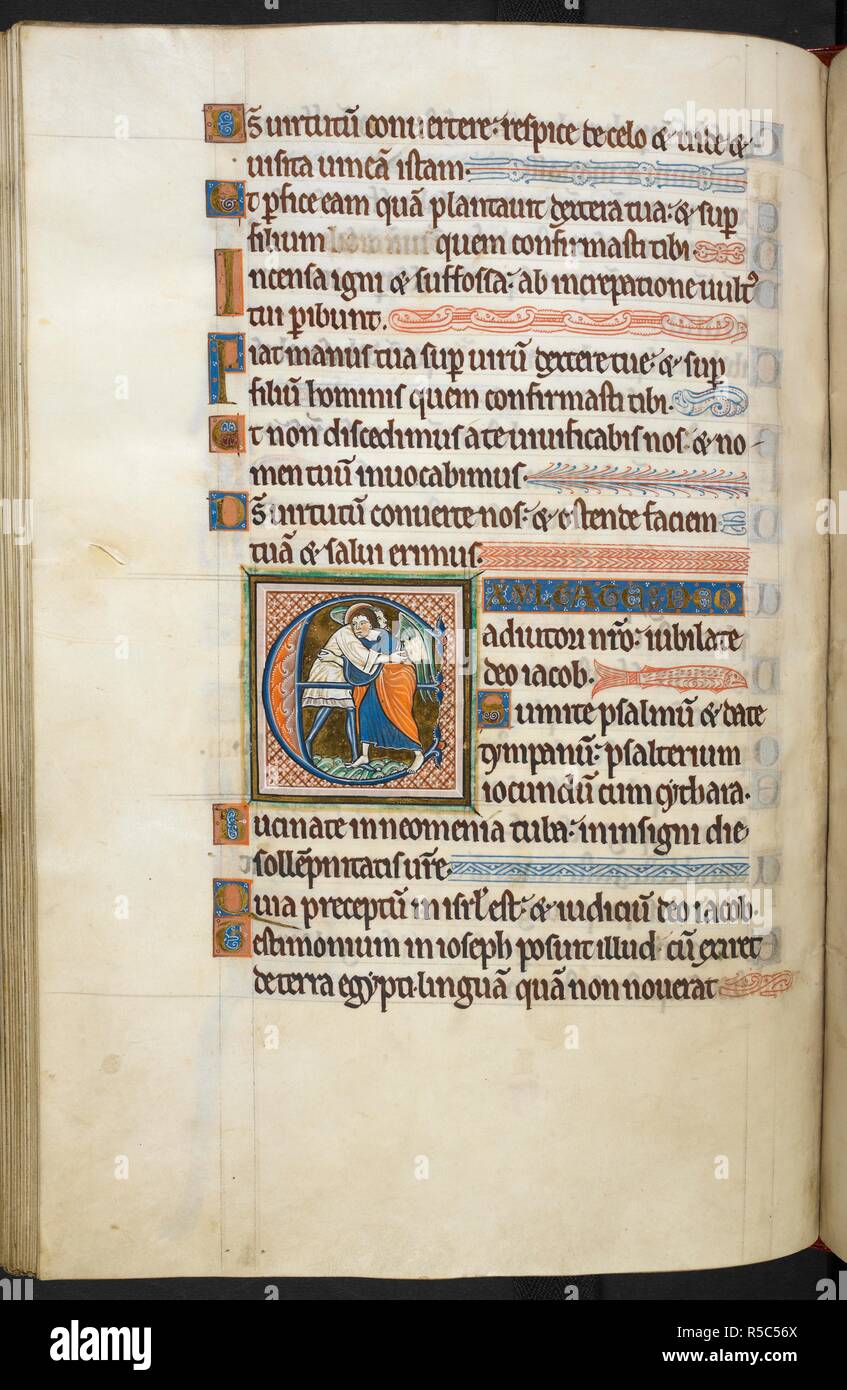 DS uirtutũ conuertere· respice de celo & uide &
uisita uineã istam·
Et ꝑfice eam quã plantauit dextera tua· & suꝑ
filium quem confirmasti tibi·
Incensa igni & suffossa· ab increpatione uultꝰ
tui ꝑibunt·
Fiat manus tua suꝑ uirũ dextere tue· & suꝑ
filiũ hominis quem confirmasti tibi·
Et non discedimus a te uiuificabis nos· & no-
men tuũ inuocabimus·
DS uirtutũ conuerte nos· & ostende faciem
tuã & salui erimus·
EXULTATE DEO
adiutori nr̃o· iubilate
deo iacob·
Sumite psalmũ & date
tympanũ· psalterium
iocundũ cum cythara·
Bucinate in neomenia tuba· in insigni die
sollẽpnitatis ur̃e·
Quia preceptũ in isrl̃ est· & iudiciũ deo iacob·
Testimonium in ioseph posuit illud· cũ exiret
de terra egypti· linguã quã non nouerat
a
alamy
Image ID: R5C56X
www.alamy.com